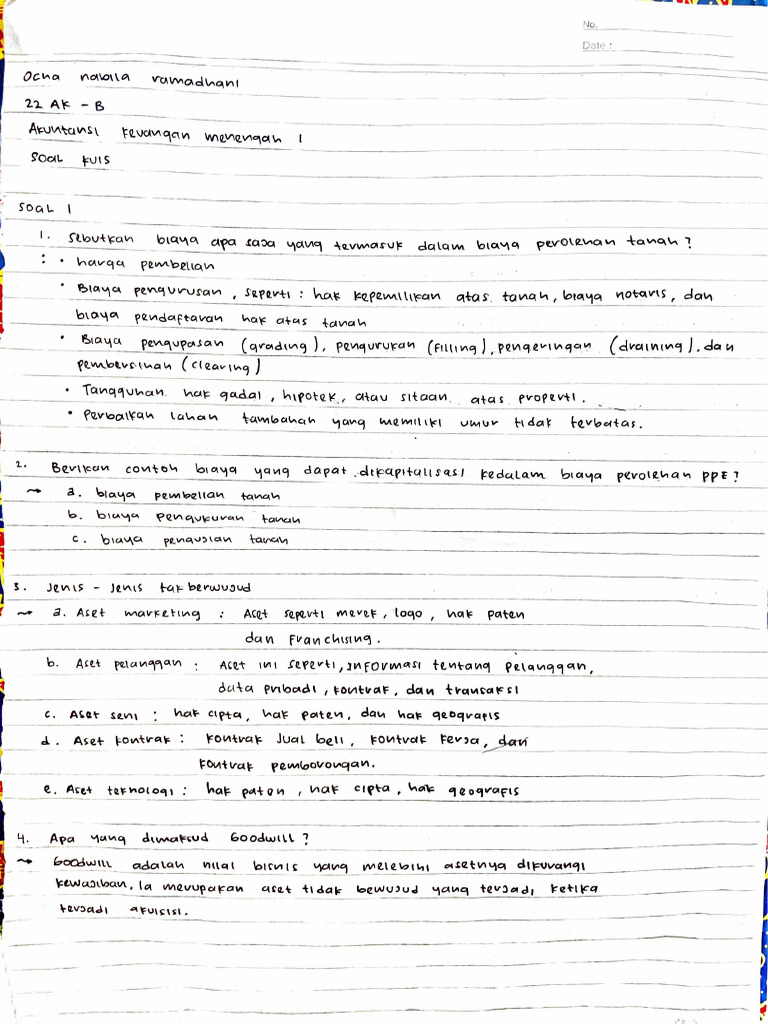 No.
Date :
Ocha nabila ramadhani
22 AK - B
Akuntansi keuangan menengah 1
Soal kuis
Soal 1
1. Sebutkan biaya apa saja yang termasuk dalam biaya perolehan tanah ?
: • harga pembelian
• Biaya pengurusan, seperti : hak kepemilikan atas tanah, biaya notaris, dan
biaya pendaftaran hak atas tanah
• Biaya pengupasan (grading), pengurukan (filling), pengeringan (draining). dan
pembersihan (clearing)
• Tangguhan hak gadai, hipotek, atau sitaan atas properti.
• Perbaikan lahan tambahan yang memiliki umur tidak terbatas.
2. Berikan contoh biaya yang dapat dikapitalisasi kedalam biaya perolehan PPE ?
~ a. biaya pembelian tanah
b. biaya pengukuran tanah
c. biaya pengujian tanah
3. Jenis - Jenis tak berwujud
~ a. Aset marketing : Aset seperti merek, logo, hak paten
dan Franchising.
b. Aset pelanggan : Aset ini seperti, informasi tentang pelanggan,
data pribadi, kontrak, dan transaksi
c. Aset seni : hak cipta, hak paten, dan hak geografis
d. Aset kontrak : kontrak jual beli, kontrak kerja, dan
kontrak pemborongan.
e. Aset teknologi : hak paten, hak cipta, hak geografis
4. Apa yang dimaksud Goodwill ?
~ Goodwill adalah nilai bisnis yang melebihi asetnya dikurangi
kewajiban. Ia merupakan aset tidak bewujud yang terjadi ketika
terjadi akuisisi.